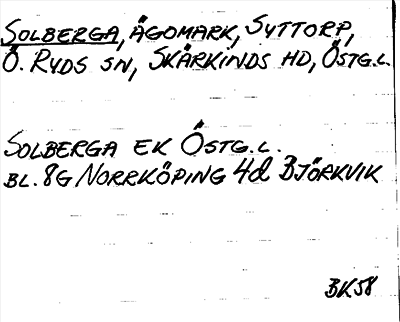 SOLBERGA, ÄGOMARK, SYTTORP,
Ö. RYDS SN, SKÄRKINDS HD, ÖSTG.L.
SOLBERGA EK ÖSTG.L.
BL. 8G NORRKÖPING 4d BJÖRKVIK
BK58